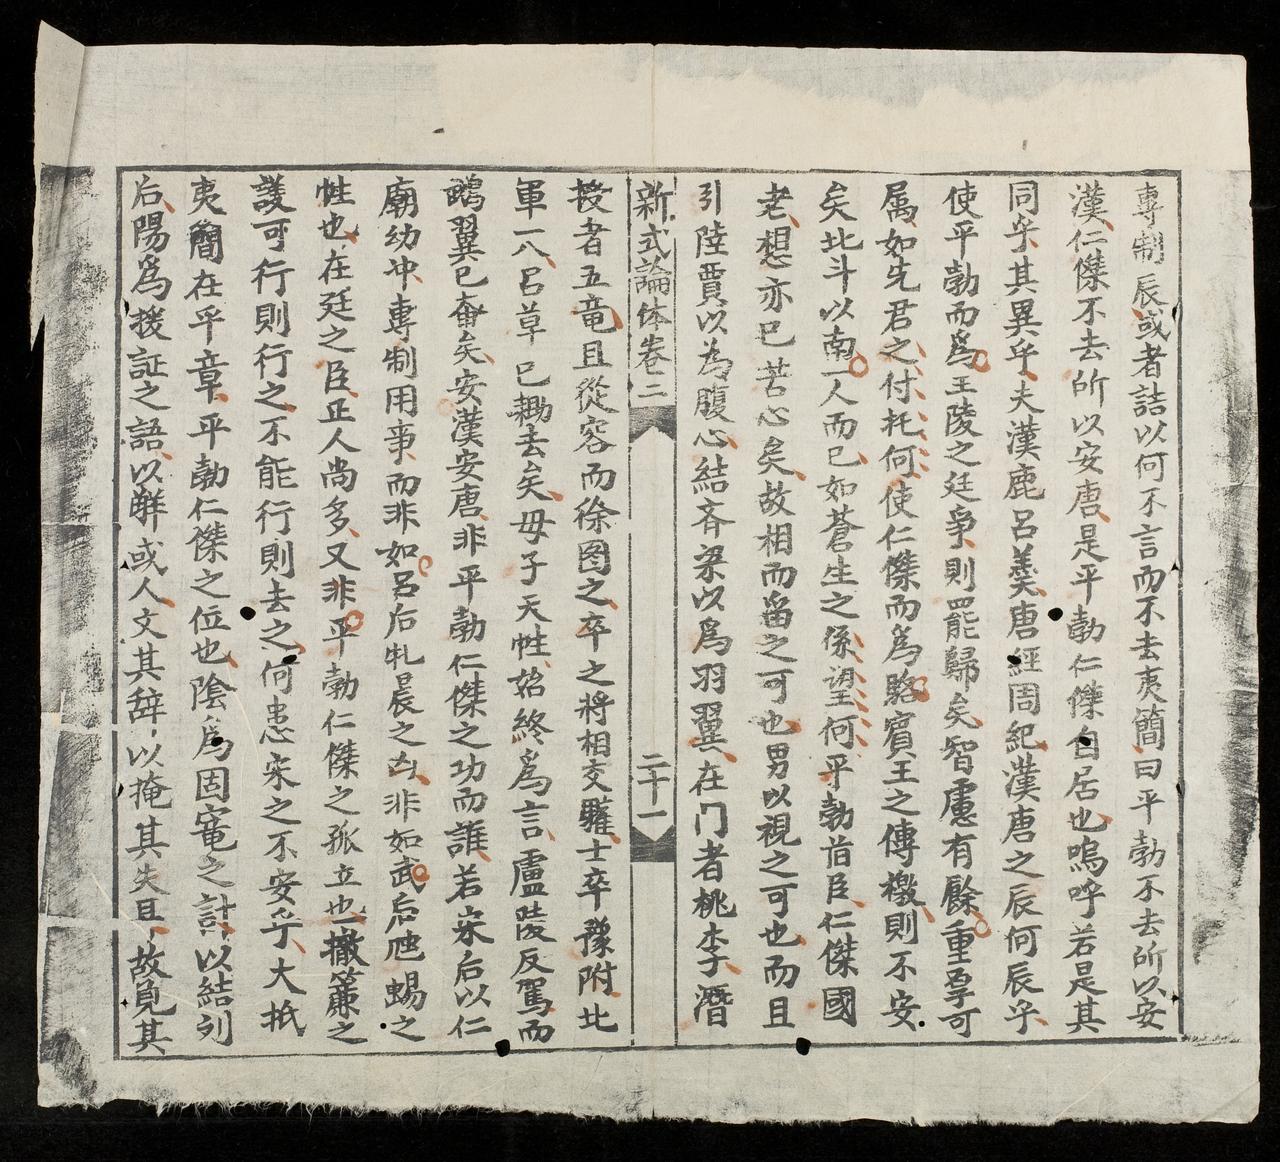 專制辰或者詰以何不言而不去夷簡曰平勃不去所以安
漢仁傑不去所以安唐是平勃仁傑自居也嗚呼若是其
同乎其異乎夫漢鹿呂羹唐經周紀漢唐之辰何辰乎
使平勃而爲王陵之廷爭則罷歸矣智慮有餘重厚可
属如先君之付托何使仁傑而爲駱賓王之傳檄則不安
矣北斗以南一人而已如蒼生之係望何平勃旧臣仁傑國
老想亦已苦心矣故相而畱之可也男以視之可也而且
引陸賈以為腹心結齐梁以爲羽翼在门者桃李潛
新式論体卷二 二十一
授者五竜且從容而徐图之卒之將相交驩士卒豫附北
軍一入呂草已鋤去矣母子天性始終爲言盧陵反駕而
鵡翼已奮矣安漢安唐非平勃仁傑之功而誰若宋后以仁
廟幼冲專制用事而非如呂后牝晨之凶非如武后虺蜴之
性也在廷之臣正人尚多又非平勃仁傑之孤立也撤簾之
議可行則行之不能行則去之何患宋之不安乎大抵
夷簡在平章平勃仁傑之位也陰爲固竉之計以結刘
后陽爲援証之語以解或人文其辞以掩其失耳故見其